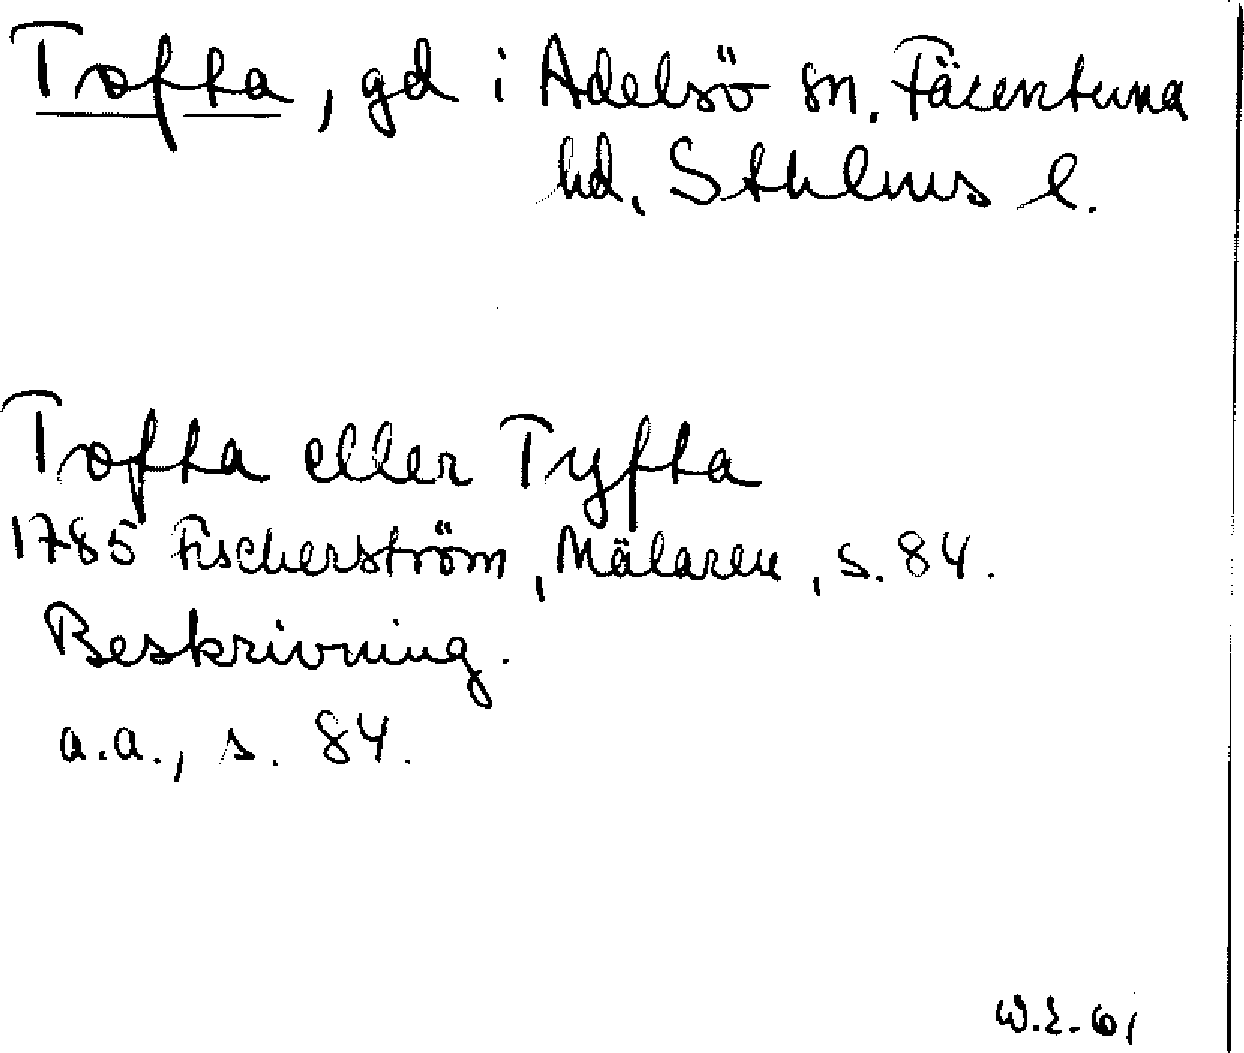 Tofta, gd i Adelsö sn. Färentuna
hd, Sthlms l.
Tofta eller Tyfta
1785 Fischerström, Mälaren, s. 84.
Beskrivning.
a.a., s. 84.
W.E-61